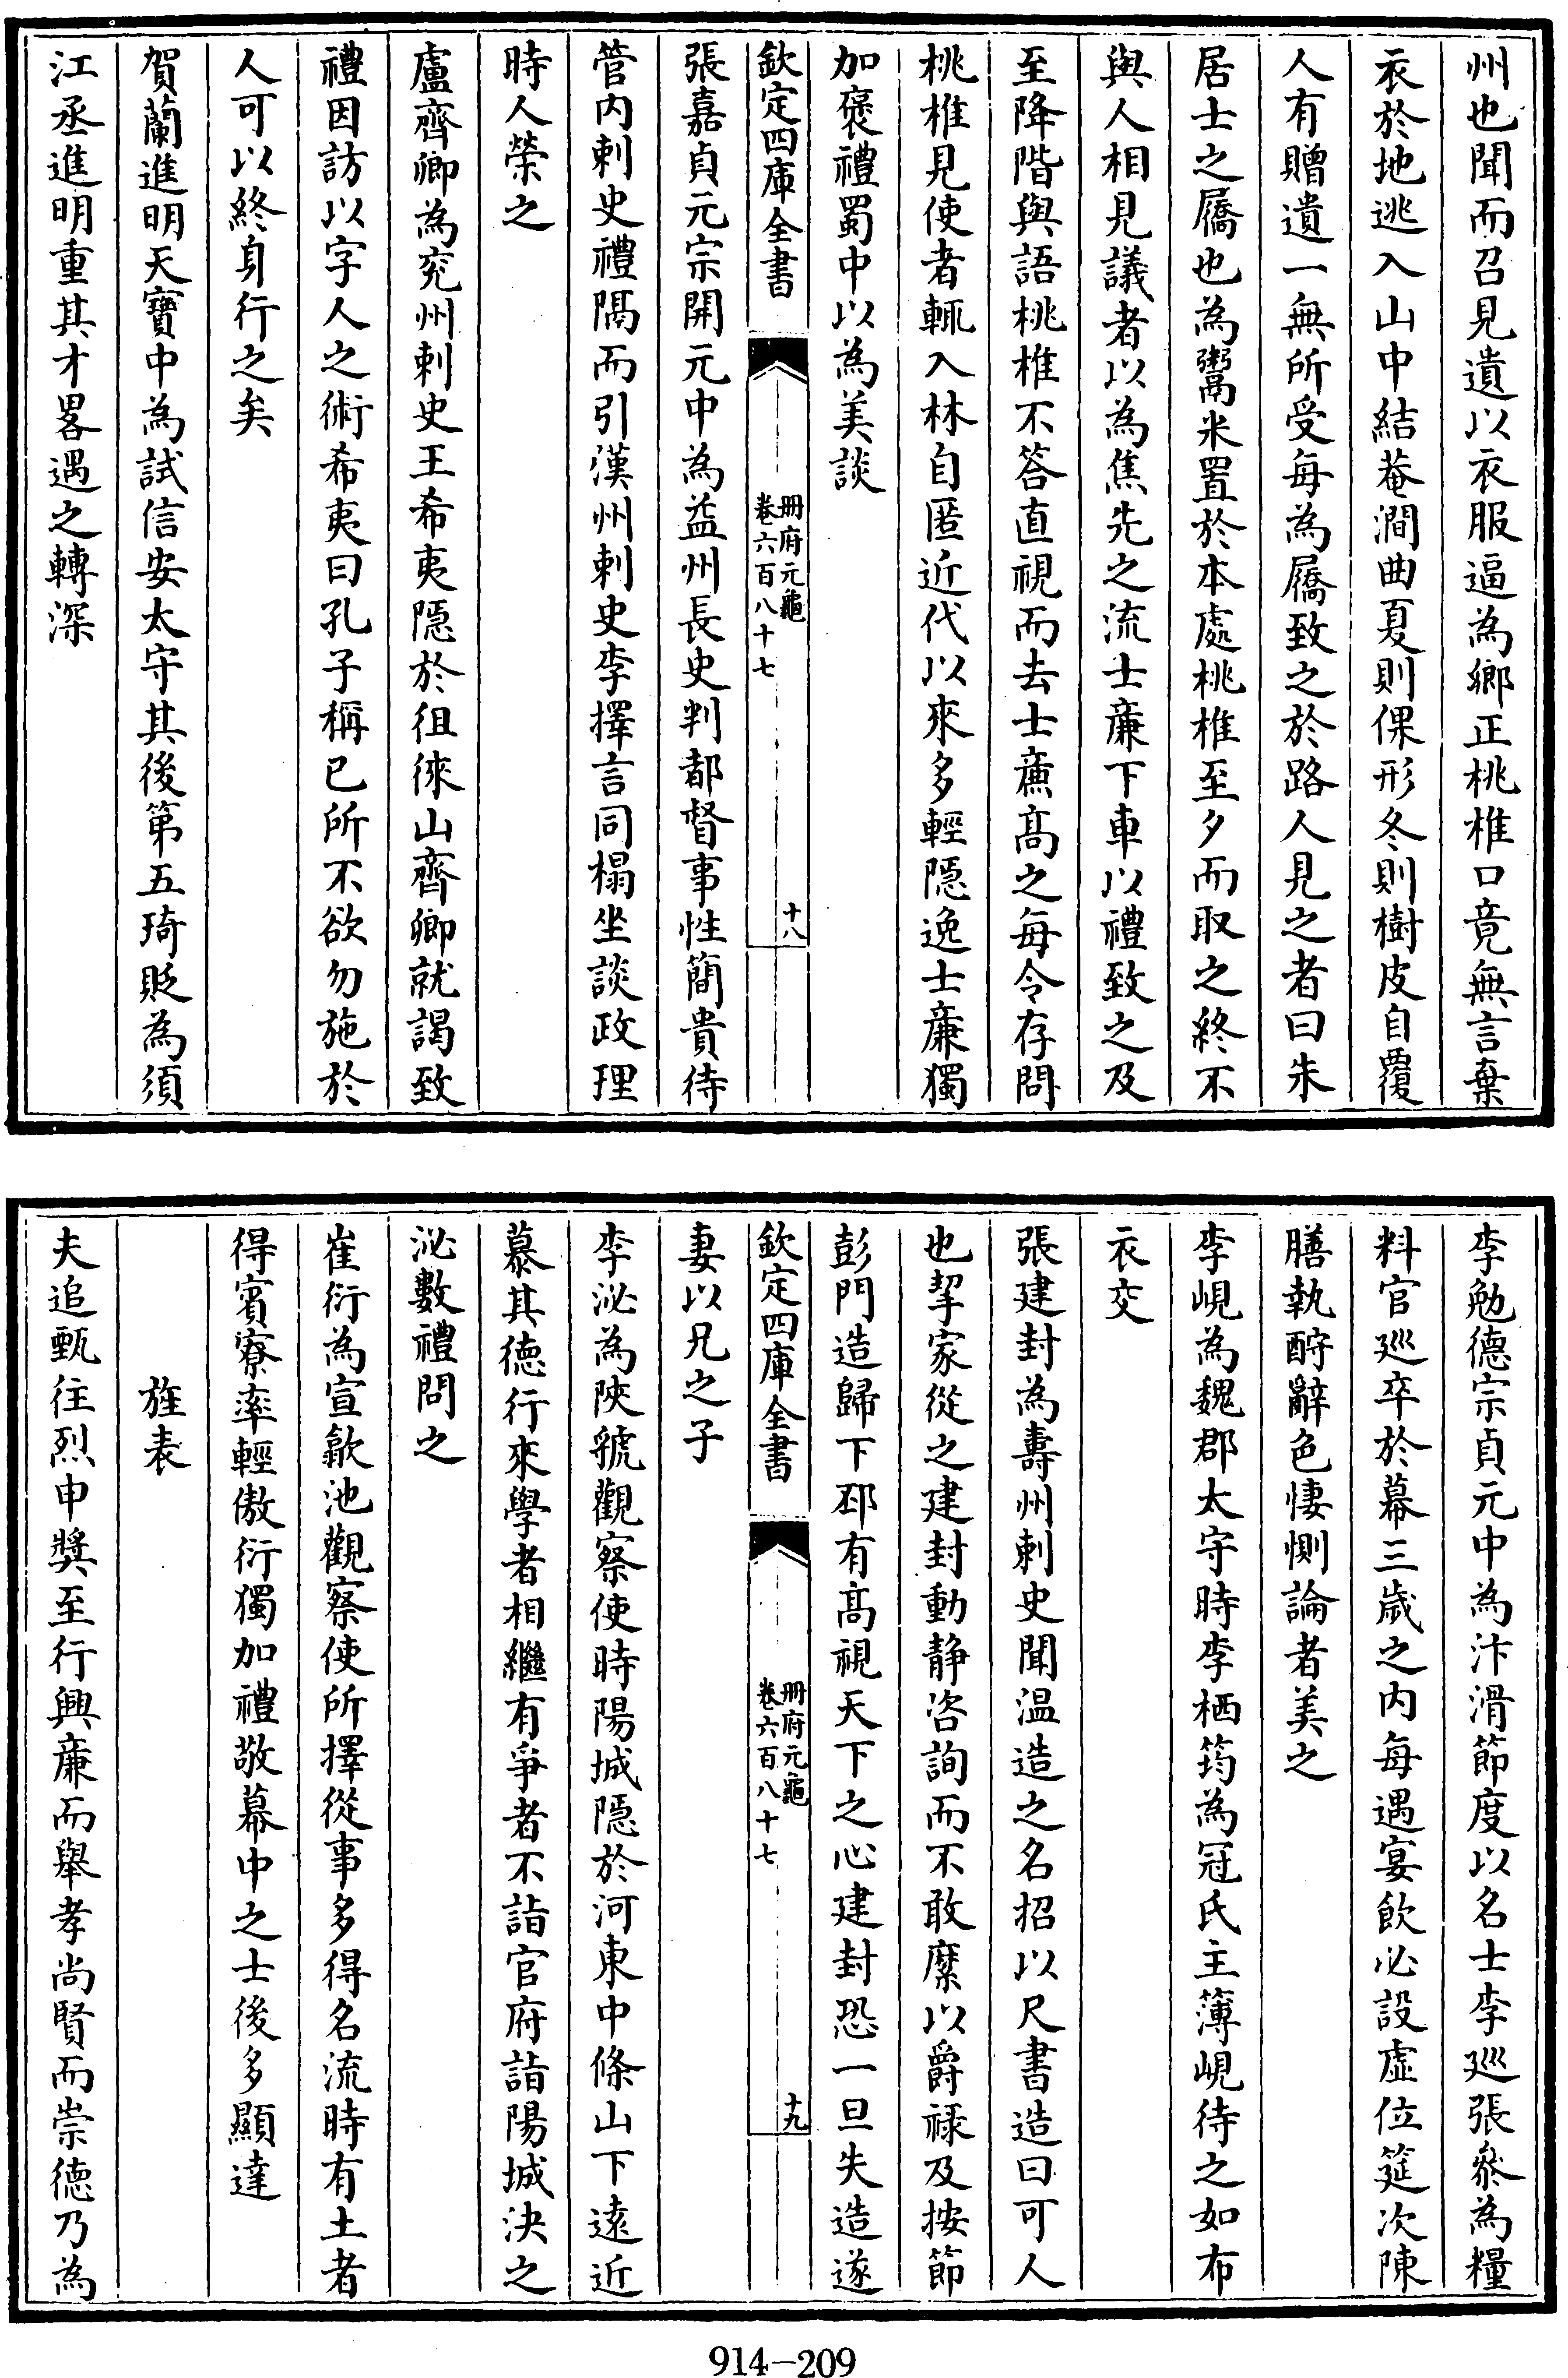 州也聞而召見遺以衣服逼為鄉正桃椎口竟無言棄
衣於地逃入山中結菴澗曲夏則倮形冬則樹皮自覆
人有贈遺一無所受每為屩致之於路人見之者曰朱
居士之屩也為鬻米置於本處桃椎至夕而取之終不
與人相見議者以為焦先之流士廉下車以禮致之及
至降階與語桃椎不答直視而去士亷髙之每令存問
桃椎見使者輒入林自匿近代以來多輕隠逸士廉獨
加褒禮蜀中以為美談
欽定四庫全書
冊府元龜
卷六百八十七
十八
張嘉貞元宗開元中為益州長史判都督事性簡貴待
管内刺史禮隔而引漢州刺史李擇言同榻坐談政理
時人榮之
盧齊卿為兖州刺史王希夷隠於徂徠山齊卿就謁致
禮因訪以字人之術希夷曰孔子稱已所不欲勿施於
人可以終身行之矣
賀蘭進明天寶中為試信安太守其後第五琦貶為須
江丞進明重其才畧遇之轉深
李勉德宗貞元中為汴滑節度以名士李廵張叅為糧
料官廵卒於幕三歲之内每遇宴飲必設虚位筵次陳
膳執酹辭色悽惻論者美之
李峴為魏郡太守時李栖筠為冠氏主簿峴待之如布
衣交
張建封為壽州刺史聞温造之名招以尺書造曰可人
也挈家從之建封動静咨詢而不敢縻以爵禄及按節
彭門造歸下邳有髙視天下之心建封恐一旦失造遂
欽定四庫全書
冊府元龜
卷六百八十七
十九
妻以兄之子
李泌為陜虢觀察使時陽城隠於河東中條山下逺近
慕其德行來學者相繼有爭者不詣官府詣陽城決之
泌數禮問之
崔衍為宣歙池觀察使所擇從事多得名流時有士者
得賓寮率輕傲衍獨加禮敬幕中之士後多顯達
旌表
夫追甄往烈申奬至行興廉而舉孝尚賢而崇德乃為
914-209